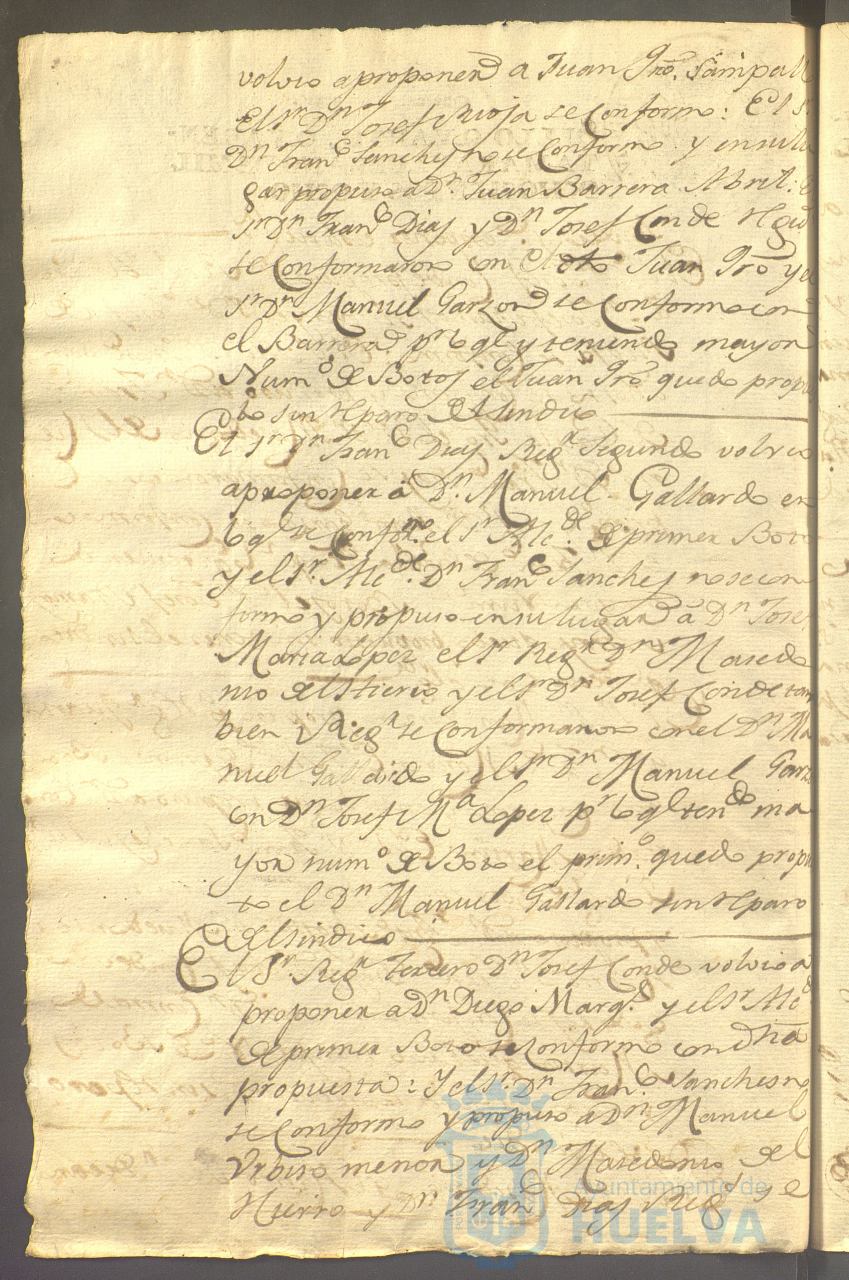 volvio aproponer a Juan Gro. Sampall
El Sr. Dn. Josef Rioja se Conformo: El S.
Dn. Franco. Sanchez no se Conformo y en su lu
gar propuso a Dn. Juan Barrera Abril: e
Sr. Dn. Franco. Diaz y Dn. Josef Conde
se Conformaron con el Juan Gro. y el
Sr. Dn. Manuel Garzon se Conformo con
el Barrera pr. lo ql. y teniendo mayor
Numo. de Botos el Juan Gro. quedo propu
to sin reparo del Sindico
El Sr. Dn. Franco. Diaz Regr. Segundo volvio
aproponer a Dn. Manuel Gallardo en
lo ql. se Conformo. el Sr. Alcde. de primer Boto
y el Sr. Alcde. Dn. Franco. Sanchez no se con
formo y propuso en su lugar a Dn. Josef
Maria Lopez el Sr. Regr. Dn. Masedo
nio del Hierro y el Sr. Dn. Josef Conde tam
bien Regr. se Conformaron con el Dn. Ma
nuel Gallardo y el Sr. Dn. Manuel Garz
on Dn. Josef Ma. Lopez pr. lo ql. tendo. ma
yor numo. de Boto el primo. quedo propu
to el Dn. Manuel Gallardo sin reparo
del Sindico
El Sr. Regr. Tercero Dn. Josef Conde volvio a
proponer a Dn. Diego Marqz. y el Sr. Alcd
de primer Boto se Conformo con dha
propuesta: Y el Sr. Dn. Franco. Sanches no
se Conformo y propuso a Dn. Manuel
Urbiso menor y Dn. Masedonio del
Hierro y Dn. Franco. Diaz Regs. y el
Ayuntamiento de
HUELVA